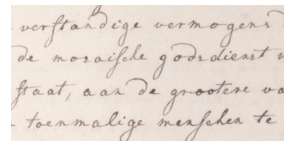 verstandige vermogens
de mozaische godsdienst
staat, aan de grootere
toenmalige menschen te